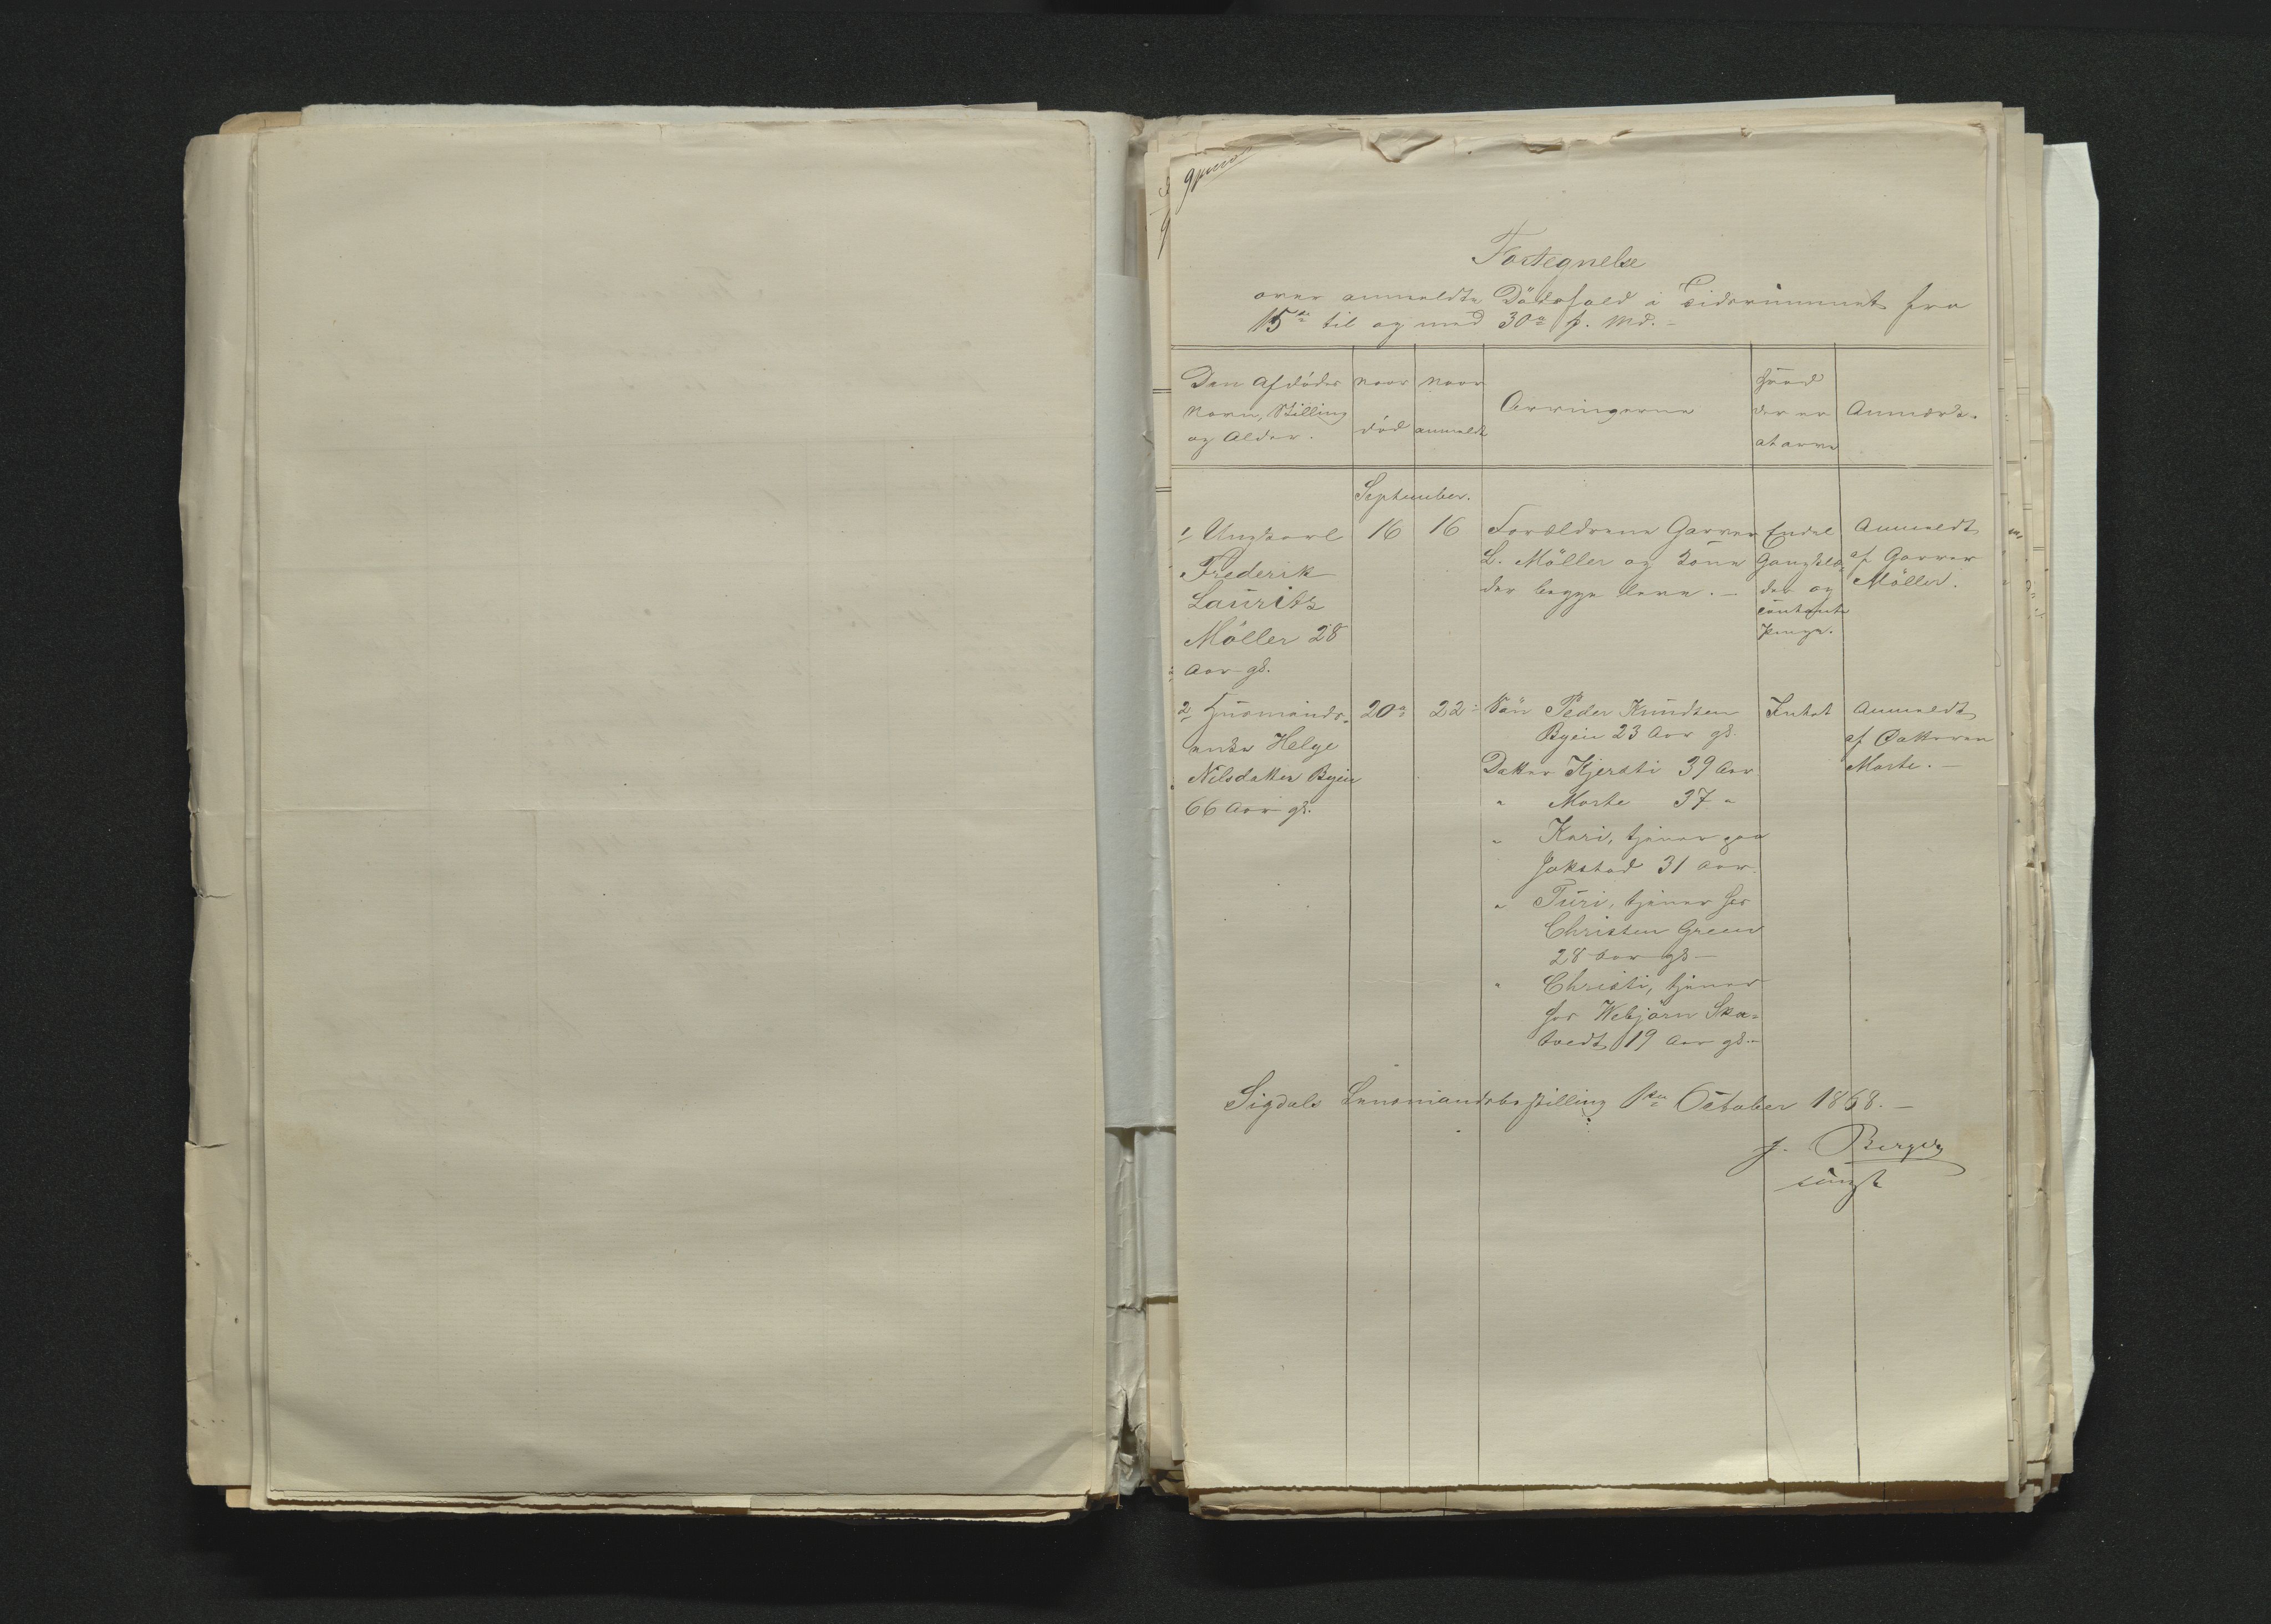 Fortegnelse
over anmeldte Dödsfald i Tidsrummet fra
15de til og med 30te f. Md. –
Den Afdödes
Navn, Stilling
og Alder.
Naar
död
Naar
anmeldt
Arvingerne
Hvad
der er
at arve
Anmærkn.
September.
1 Ungkarl
Frederik
Lauritz
Möller 28
Aar gl.
16
16
Forældrene Garver
L. Möller og Kone
der begge leve. –
Endel
Gangklæ-
der og
contante
Penge.
Anmeldt
af Garver
Möller.
2 Huusmands-
enke Helge
Nilsdatter Byein
66 Aar gl.
20
22
Sön Peder Knudsen
Byein 23 Aar gl.
Datter Kjersti 39 Aar
" Marte 37 "
" Kari, tjener paa
Jokstad 31 Aar.
" Turi, tjener hos
Christen Green
28 Aar gl –
" Christi, tjener
hos Webjörn Ska-
tvedt 19 Aar gl. –
Intet
Anmeldt
af Datteren
Marte. –
Sigdals Lensmandsbestilling 1ste October 1868. –
J. Berger
const